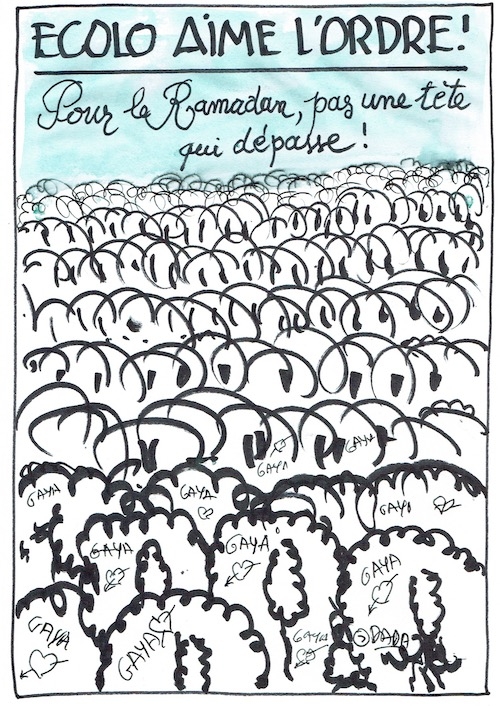 ECOLO AIME L'ORDRE!
Pour le Ramadan, pas une tête
qui dépasse!
GAYA
GAYA
GAYA
GAYA
GAYA
GAYA
GAYA
GAYA
GAYA
GAYA
GAYA
DADA